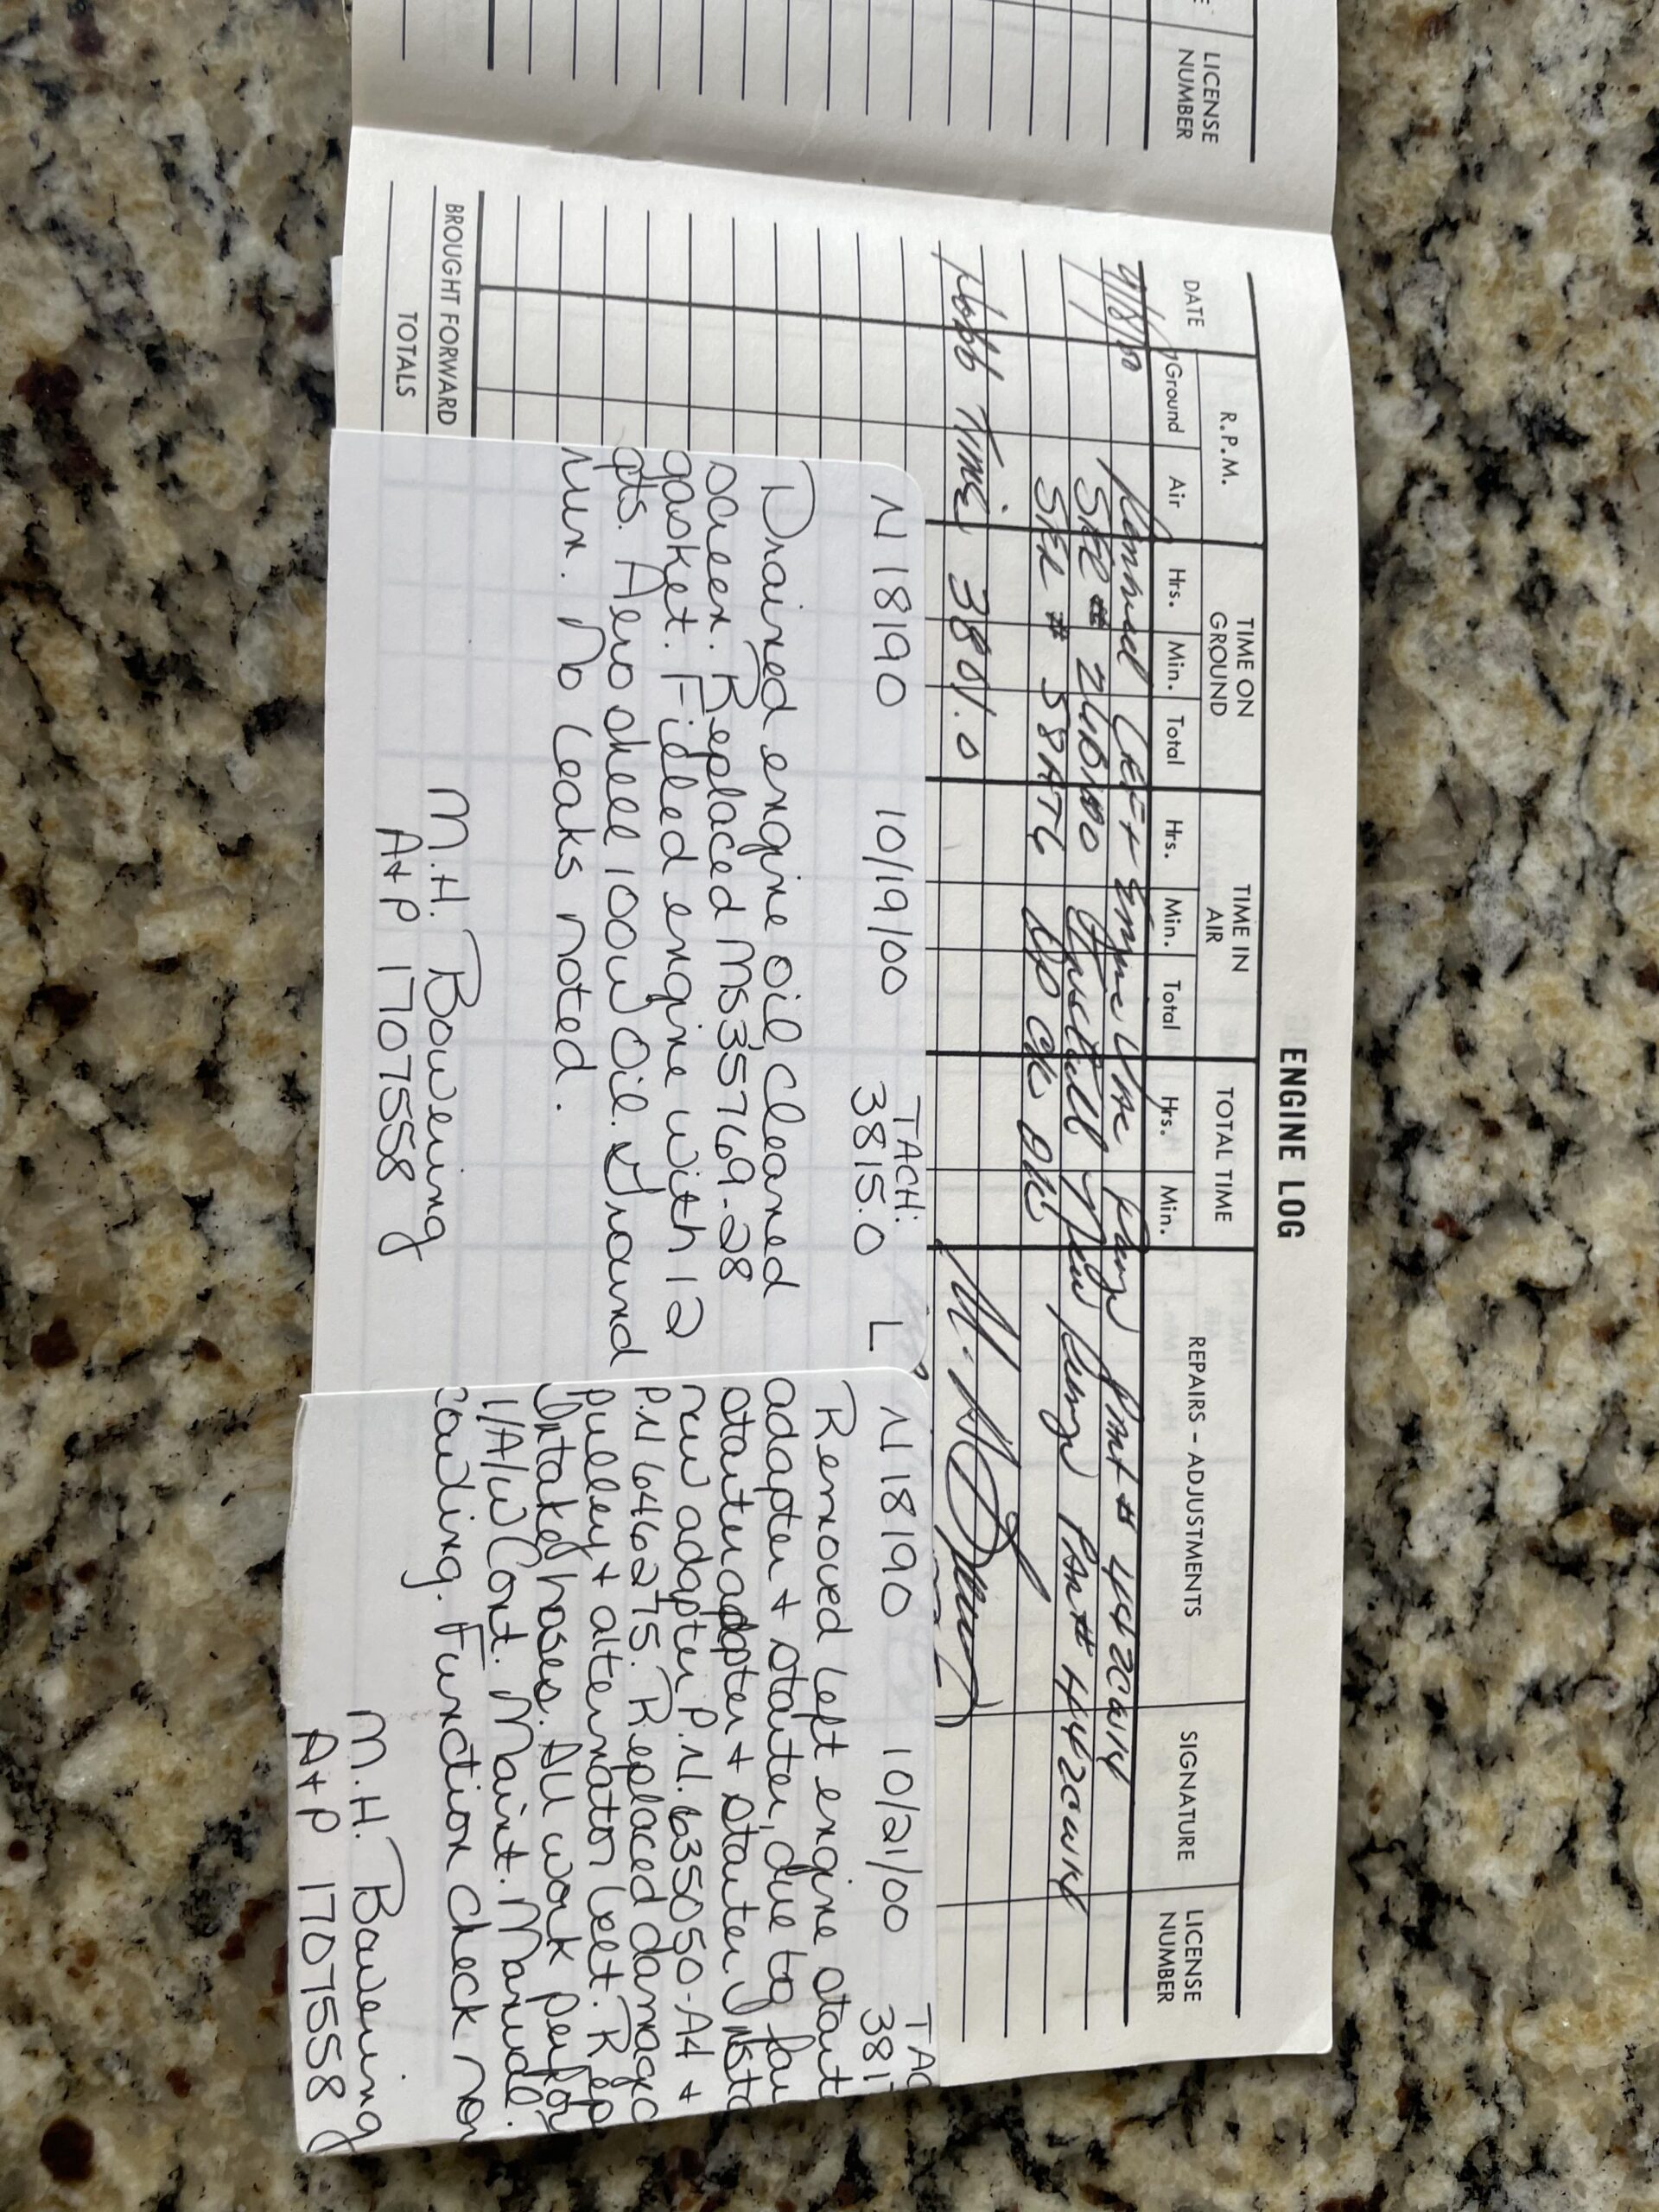 LICENSE
NUMBER
ENGINE LOG
DATE
R.P.M.
TIME ON
GROUND
TIME IN
AIR
TOTAL TIME
REPAIRS – ADJUSTMENTS
SIGNATURE
LICENSE
NUMBER
Ground Air Hrs. Min. Total Hrs. Min. Total Hrs. Min.
Removed Left Engine Vac Pump Part # 442CW14
SER # Install New Pump Part # 442CW14
SER # 58AT6 OP CK OK
Hobb Time 3801.0
BROUGHT FORWARD
TOTALS
N18190 10/19/00 TACH:
3815.0 L
Drained engine oil cleaned
screen. Replaced MS35769-28
gasket. Filled engine with 12
qts. Aeroshell 100W Oil. Ground
run. No leaks noted.
M.H. Bowering
A+P 1707558
N18190 10/21/00 TAC
381
Removed left engine start
adapter + starter, due to fau
starter adapter + starter. Insta
new adapter P.N. 635050-A4 +
P.N 646275. Replaced damage
pulley + alternator belt. Rep
Intake hoses. All work perfor
I/A/W Cont. Maint. Manual.
cowling. Function check nor
M.H. Bowering
A+P 1707558